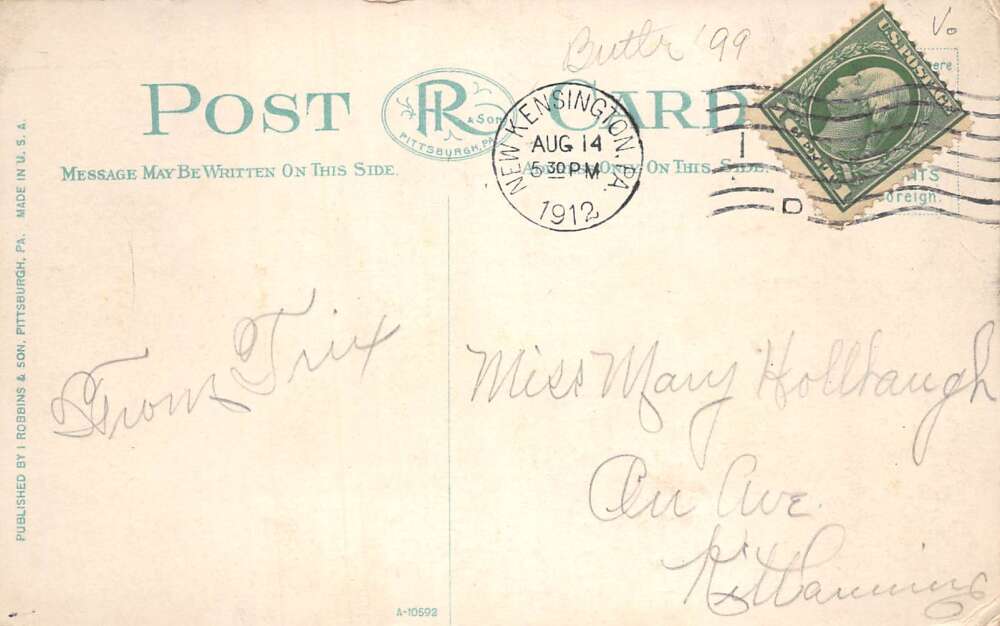 Butlr '99
Vo
POST CARD
R & SON PITTSBURGH, PA.
NEW KENSINGTON, PA.
AUG 14
5 30 PM
1912
D
U.S. POSTAGE
1 CENT 1
MESSAGE MAY BE WRITTEN ON THIS SIDE.
ADDRESS ONLY ON THIS SIDE.
here
NTS
oreign.
PUBLISHED BY I ROBBINS & SON, PITTSBURGH, PA. MADE IN U. S. A.
From Trix
Miss Mary Hollbaugh
Ave.
Kittanning
A-10592